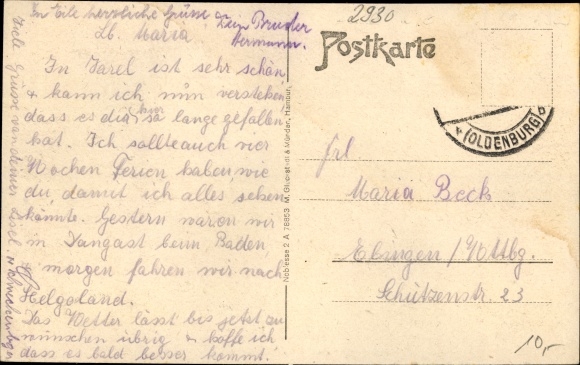 In Eile herzliche Grüsse Dein Bruder
Lb. Maria Hermann.
In Varel ist sehr schön,
+ kann ich nun verstehen
dass es dir hier so lange gefallen
hat. Ich sollte auch vier
Wochen Ferien haben, wie
du, damit ich alles sehen
könnte. Gestern waren wir
in Dangast beim Baden
morgen fahren wir nach
Helgoland.
Das Wetter lässt bis jetzt zu
wünschen übrig + hoffe ich
dass es bald besser kommt!
Viele Grüsse von deiner
2930
Postkarte
(OLDENBURG)
Noblesse 2 A 78853 M. Glückstadt & Münden, Hamburg.
Frl
Maria Beck
Ebingen / Wttbg.
Schützenstr. 23
10,-